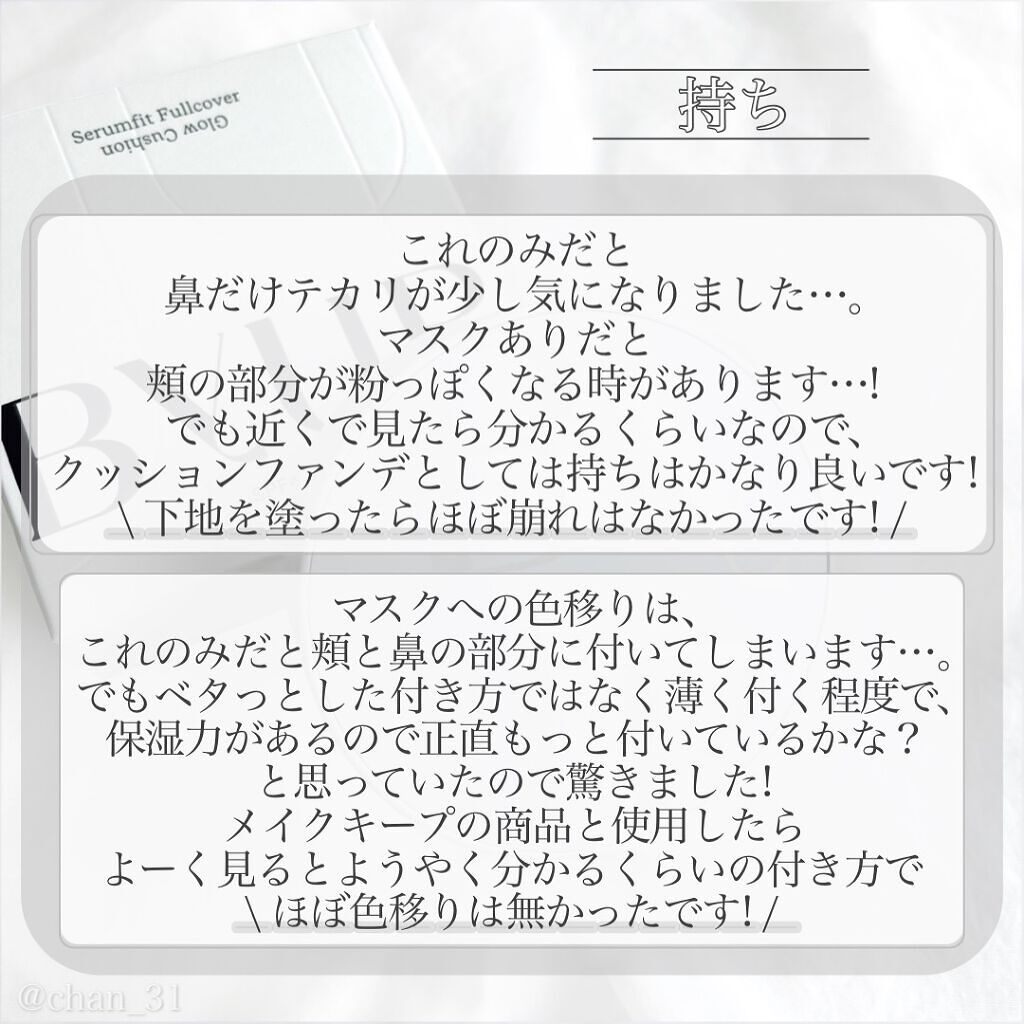 Serumfit Fullcover
Glow Cushion
持ち
これのみだと
鼻だけテカリが少し気になりました…。
マスクありだと
頬の部分が粉っぽくなる時があります…!
でも近くで見たら分かるくらいなので、
クッションファンデとしては持ちはかなり良いです!
\ 下地を塗ったらほぼ崩れはなかったです! /
マスクへの色移りは、
これのみだと頬と鼻の部分に付いてしまいます…。
でもベタっとした付き方ではなく薄く付く程度で、
保湿力があるので正直もっと付いているかな？
と思っていたので驚きました!
メイクキープの商品と使用したら
よーく見るとようやく分かるくらいの付き方で
\ ほぼ色移りは無かったです! /
@chan_31